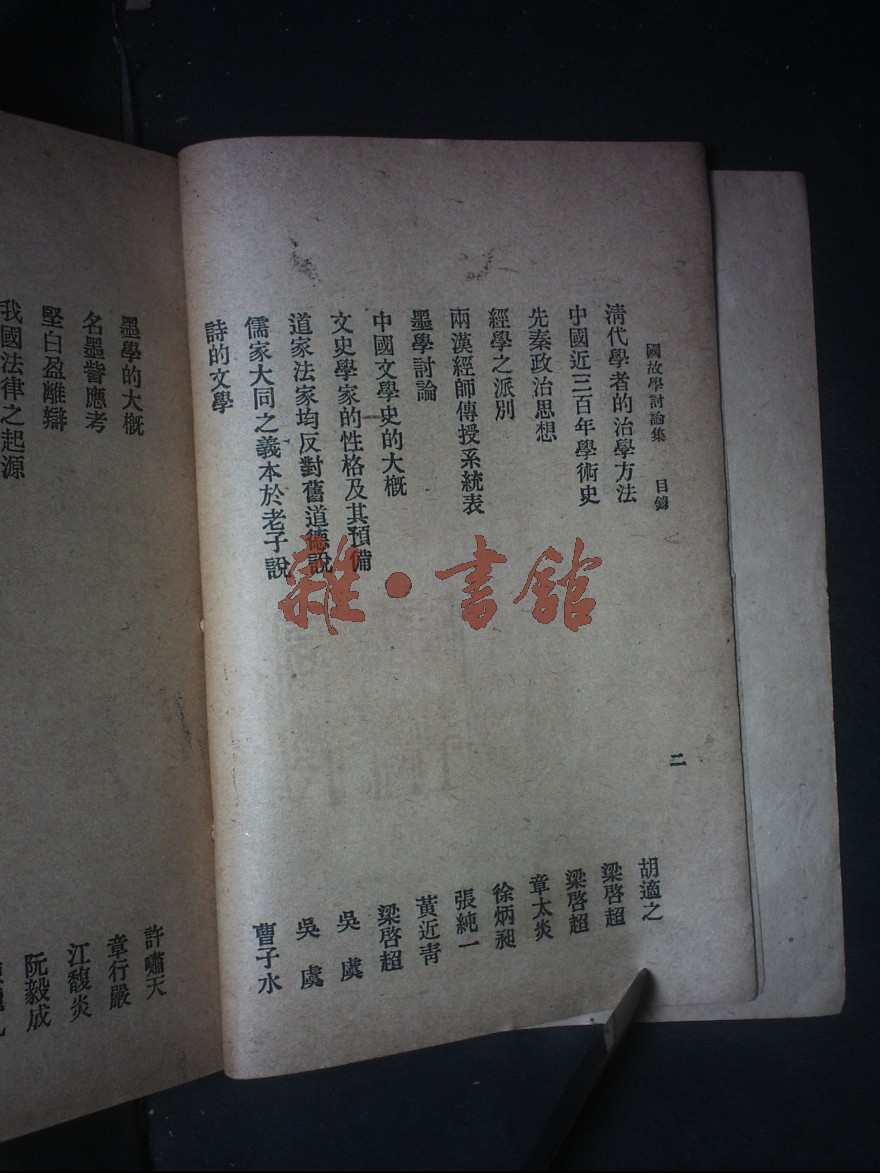 國故學討論集 目錄 二
清代學者的治學方法 胡適之
中國近三百年學術史 梁啓超
先秦政治思想 梁啓超
經學之派別 章太炎
兩漢經師傳授系統表 徐炳昶
墨學討論 張純一
中國文學史的大槪 黃近青
文史學家的性格及其預備 梁啓超
道家法家均反對舊道德說 吳虞
儒家大同之義本於老子說 吳虞
詩的文學 曹子水
墨學的大槪 許嘯天
名墨訾應考 章行嚴
堅白盈離辯 江馥炎
我國法律之起源 阮毅成
雜·書館